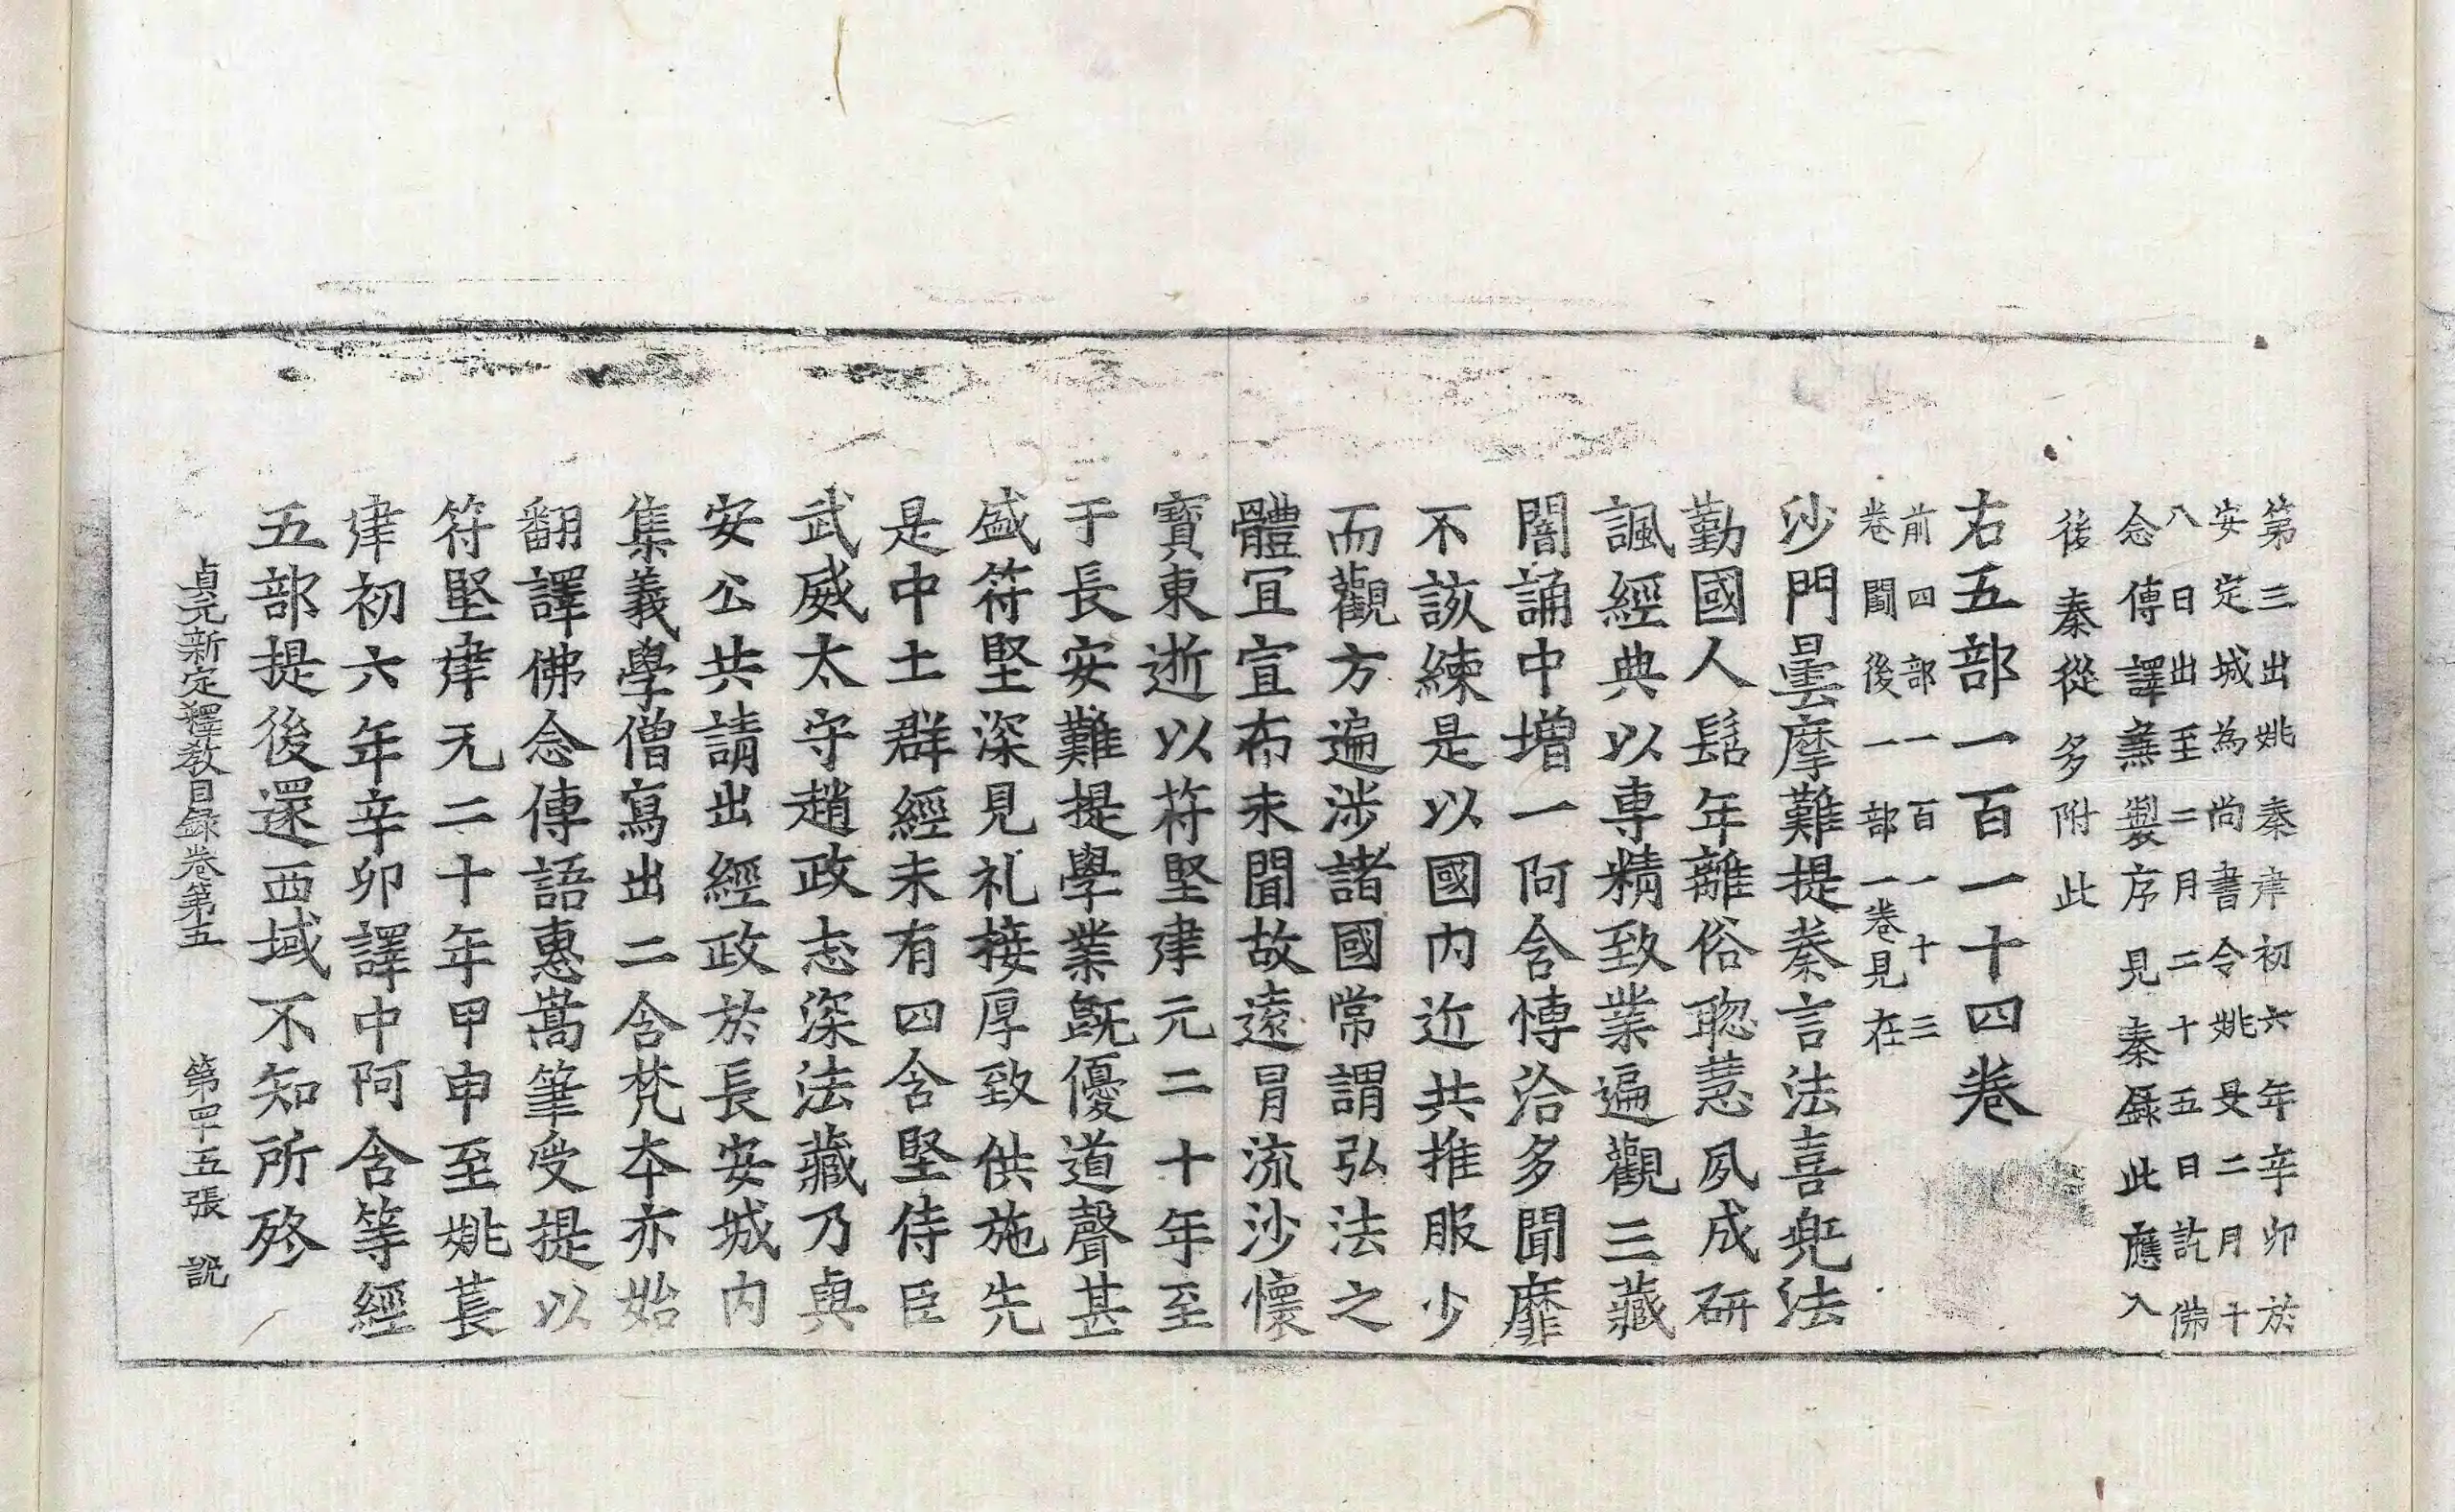 第三出姚秦建初六年辛卯於
安定城為尚書令姚旻二月十
八日出至二月二十五日訖佛
念傳譯兼製序見秦録此應入
後秦從多附此
右五部一百一十四卷
前四部一百一十三
卷闕後一部一卷見在
沙門曇摩難提秦言法喜兜法
勤國人髫年離俗聡慧夙成研
諷經典以専精致業遍觀三藏
闇誦中増一阿含愽洽多聞靡
不該練是以國內近共推服少
而觀方遍涉諸國常謂弘法之
體冝宣布未聞故遠冒流沙懷
寶東逝以苻堅建元二十年至
于長安難提學業旣優道聲甚
盛符堅深見礼接厚致供施先
是中土群經未有四含堅侍臣
武威太守趙政志深法藏乃與
安公共請出經政於長安城內
集義學僧寫出二含梵夲亦始
翻譯佛念傳語惠嵩筆受提以
符堅建元二十年甲申至姚萇
建初六年辛卯譯中阿含等經
五部提後還西域不知所終
貞元新定釋教目録卷第五　第四十五張　說